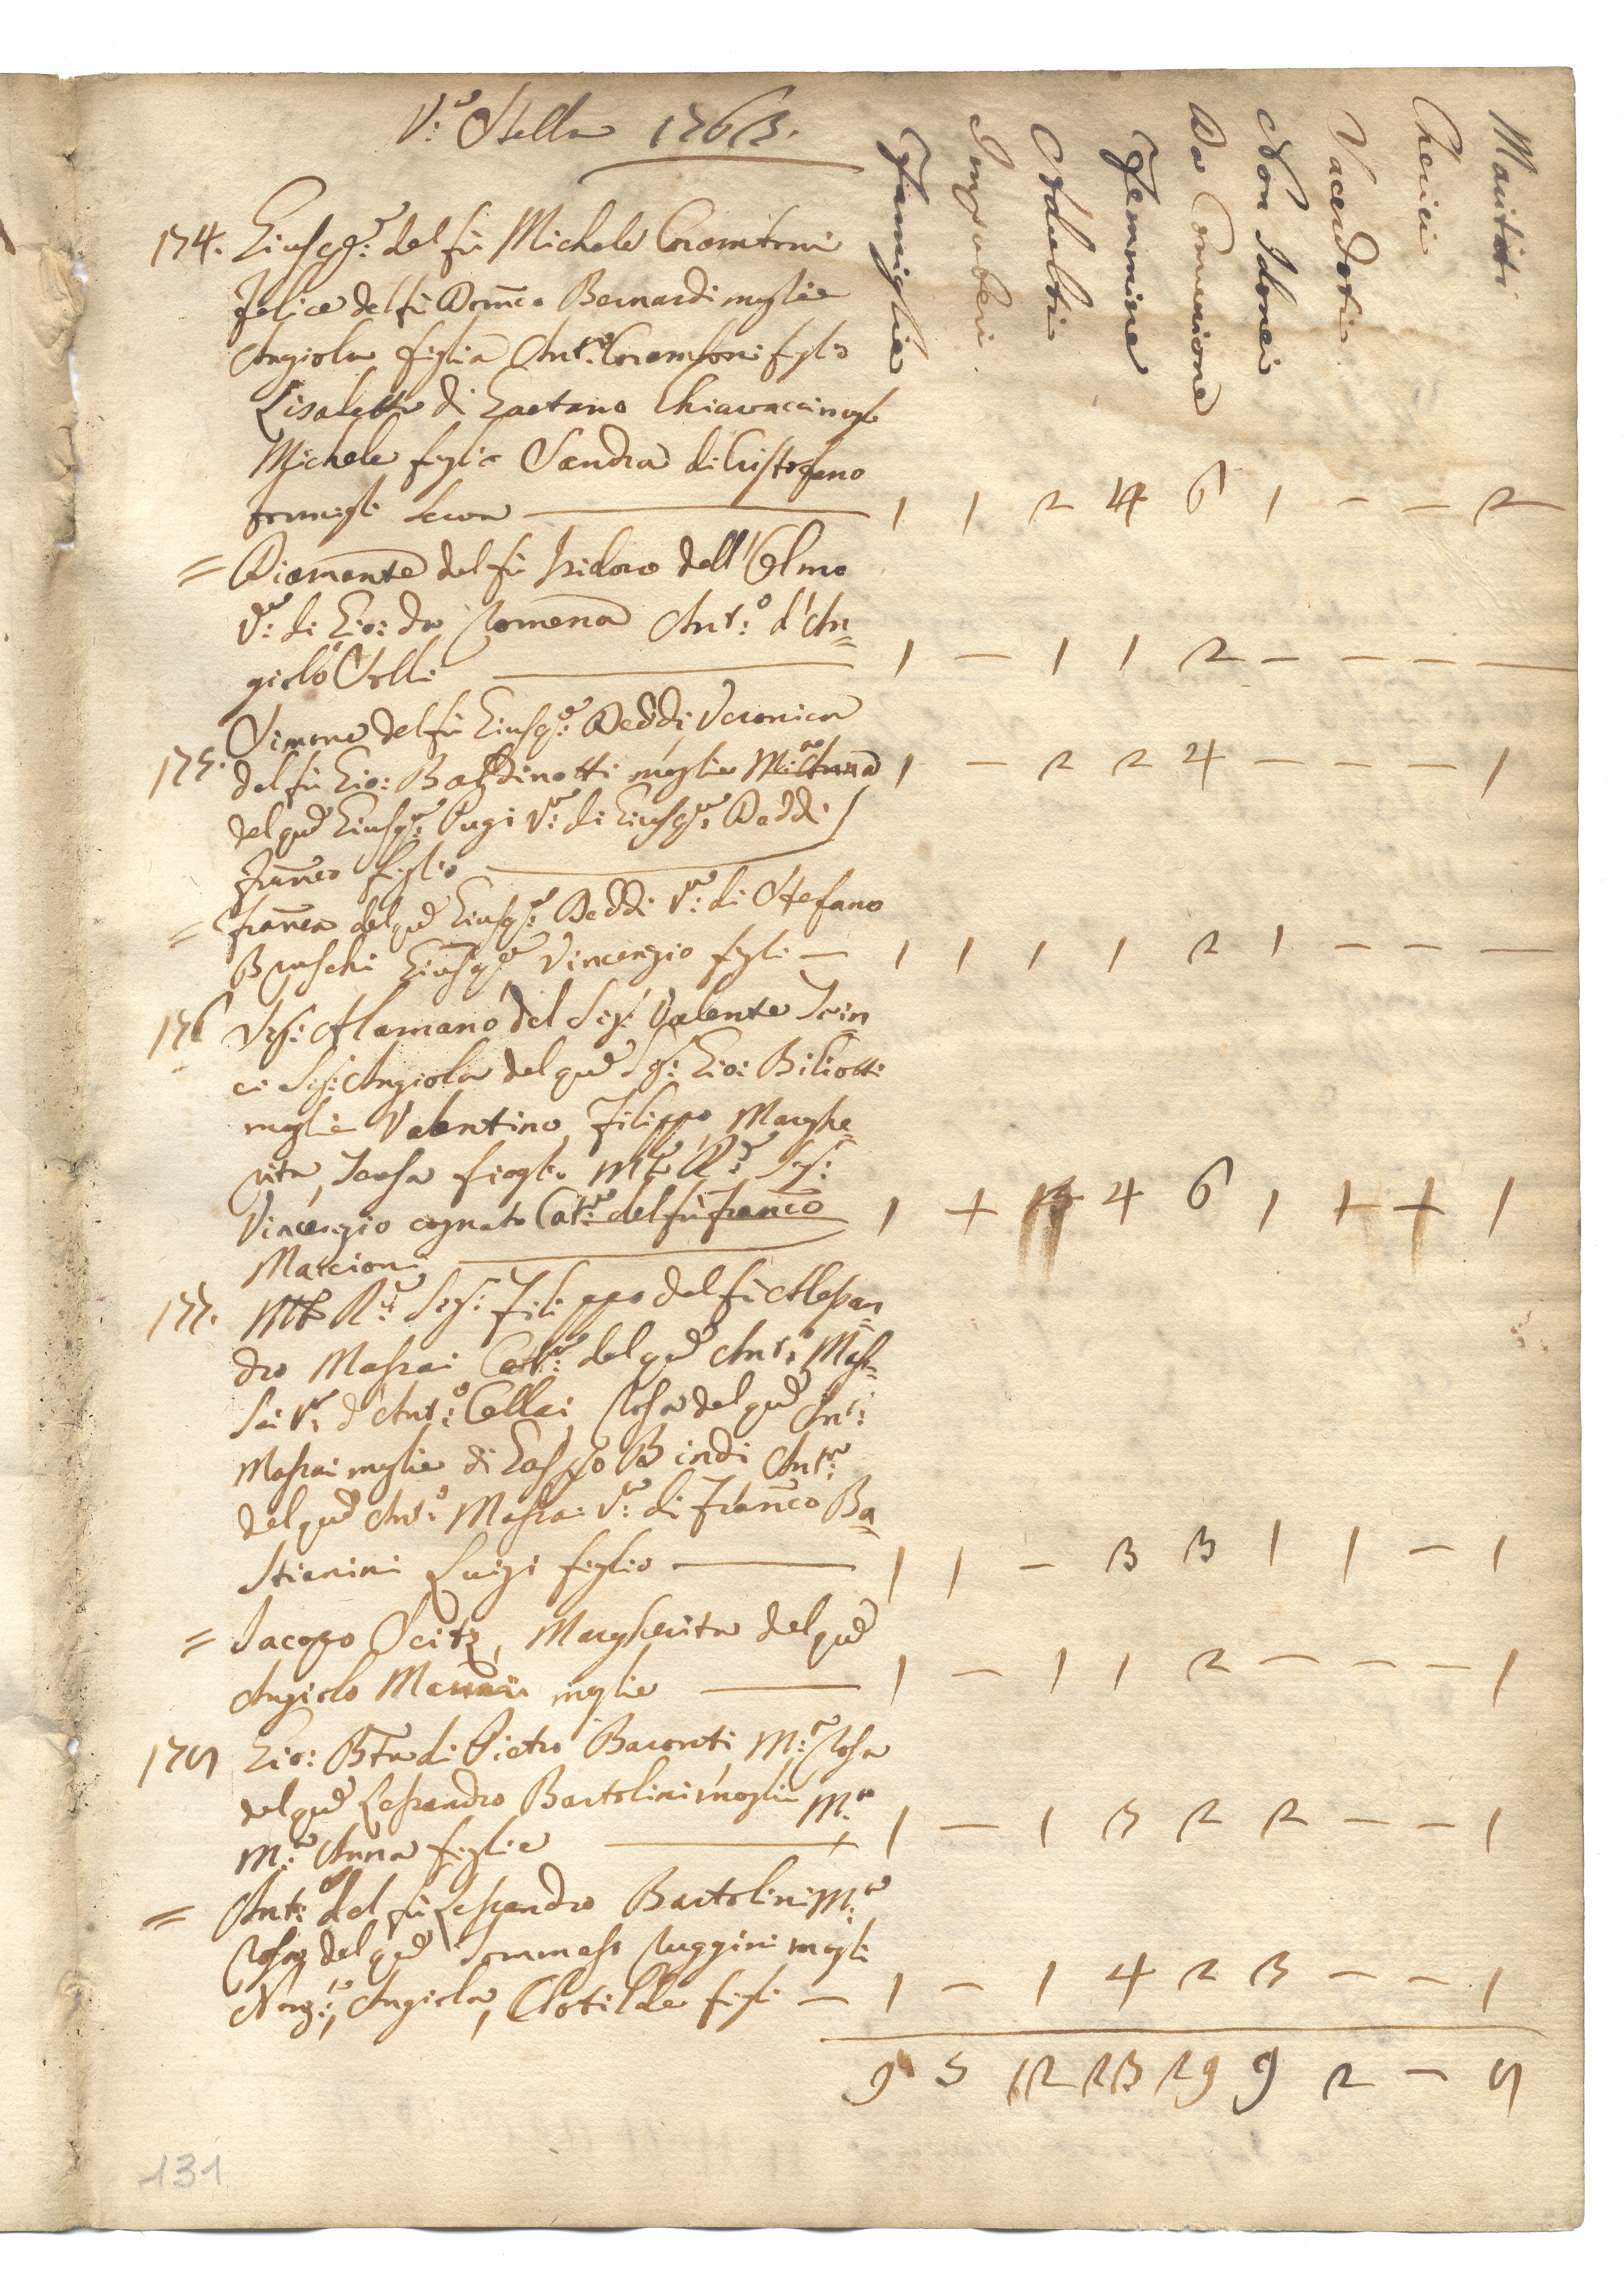 V:a Stella 1763.
Famiglie Impuberi Adulti Femmine Da Comunione Non Idonei Sacerdoti Cherici Mariti
174. Giusep.e: del fù Michele
Felice del fù Dom.co Bernardi moglie
Angiola figlia Ant.o figlio
Lisabetta di Gaetano Chiavacci mogl
Michele figlio Sandra di Cristofano
serva — 1 1 2 4 6 1 - - 2
= Diamante del fù Isidoro dell'Olmo
V:a di Gio: da Romena Ant:o d'An=
giolo — 1 - 1 1 2 - - - -
Simone del fù Giusep:e Daddi Veronica
175. del fù Gio: Baldinotti moglie M:a Anna 1 - 2 2 4 - - - 1
del qu Giusep:e Pugi V:a di Giusep:e Daddi
Franco figlio —
= Franca del qu Giusep:e Daddi V:a di Stefano
Bruschi Giusep:e Vincenzio figli — 1 1 1 1 2 1 - - -
176 Sig: Alamano del Sig: Valente
ci Sig: Angiola del qu Sig: Gio: Biliotti
moglie Valentino, Filippo, Marghe=
rita, figli M:to R:do Sig:
Vincenzio cognato Cat:a del fù Franco 1 + 3 4 6 1 + + 1
Marcioni —
177. Mto R:do Sig: Filippo del fù Alessan=
dro Massai Cat:a del qu Ant:o Mas=
sai V:a d'Ant:o Cellai Rosa del qu Ant:
Massai moglie di Gasppo Bindi Ant:a
del qu Ant:o Massai V:a di Franco Ba=
stianini Luigi figlio — 1 1 - 3 3 1 1 - 1
= Jacopo Seitz, Margherita del qu
Angiolo moglie — 1 - 1 1 2 - - - 1
178 Gio: Bta di Pietro Baronti M:a Rosa
del qu Lessandro Bartolini moglie M:a
M:a Anna figlie — 1 - 1 3 2 2 - - 1
= Ant:o del fù Lessandro Bartolini M:a
Rosa del qu Tommaso Ruggini mogli
Nunz:a, Angiola, Clotilde figli — 1 - 1 4 2 3 - - 1
9 5 12 23 29 9 2 - 8
131